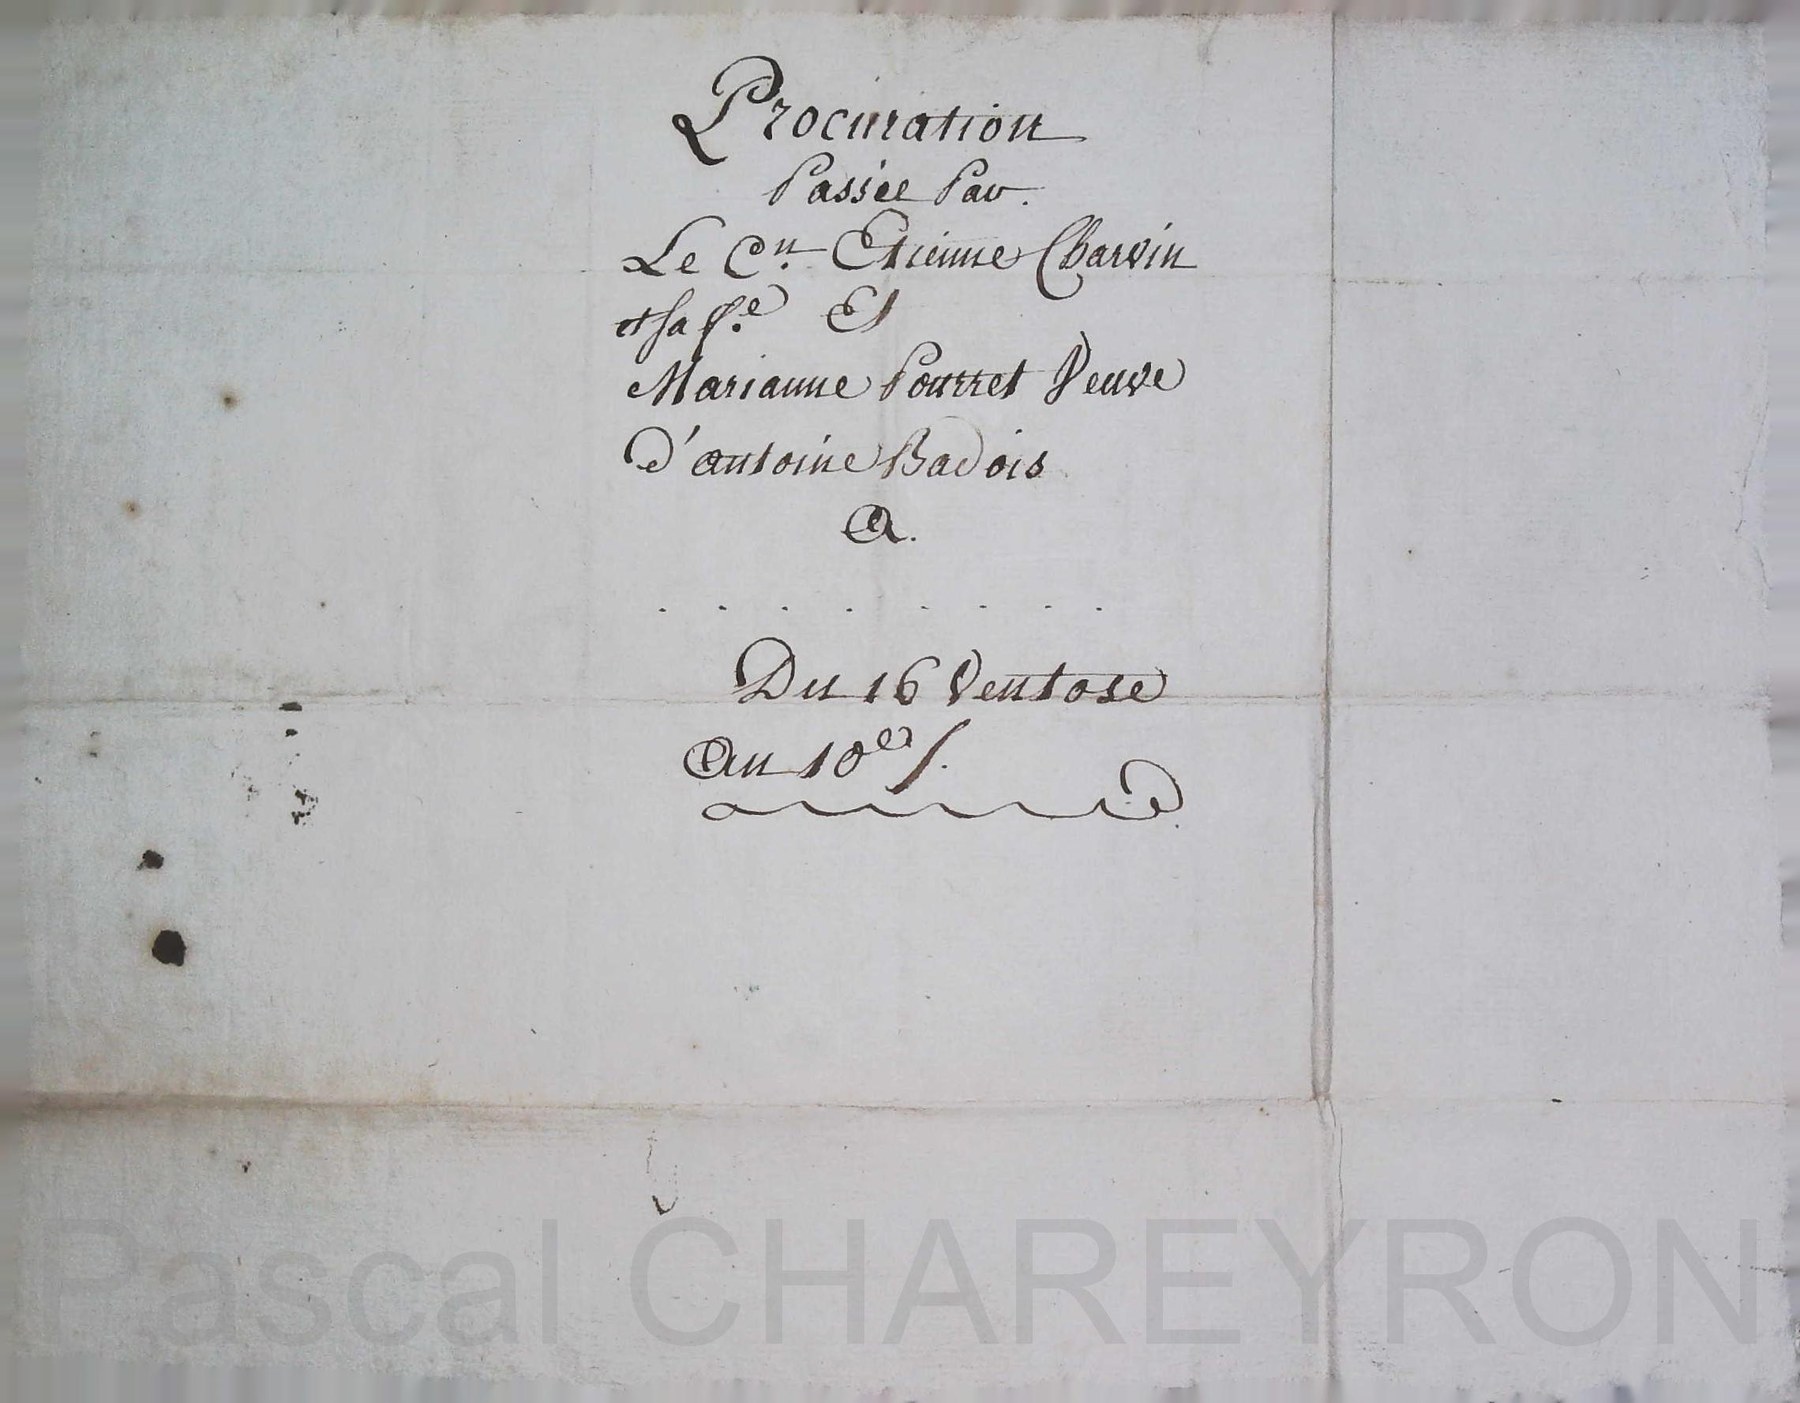 Procuration
Passée Par.
Le Cn. Etienne Charvin
et sa fe. Et
Marianne Pourret Veuve
d'antoine Badois
a.
. . . . . . . .
Du 16 Ventose
an 10e/.
Pascal CHAREYRON